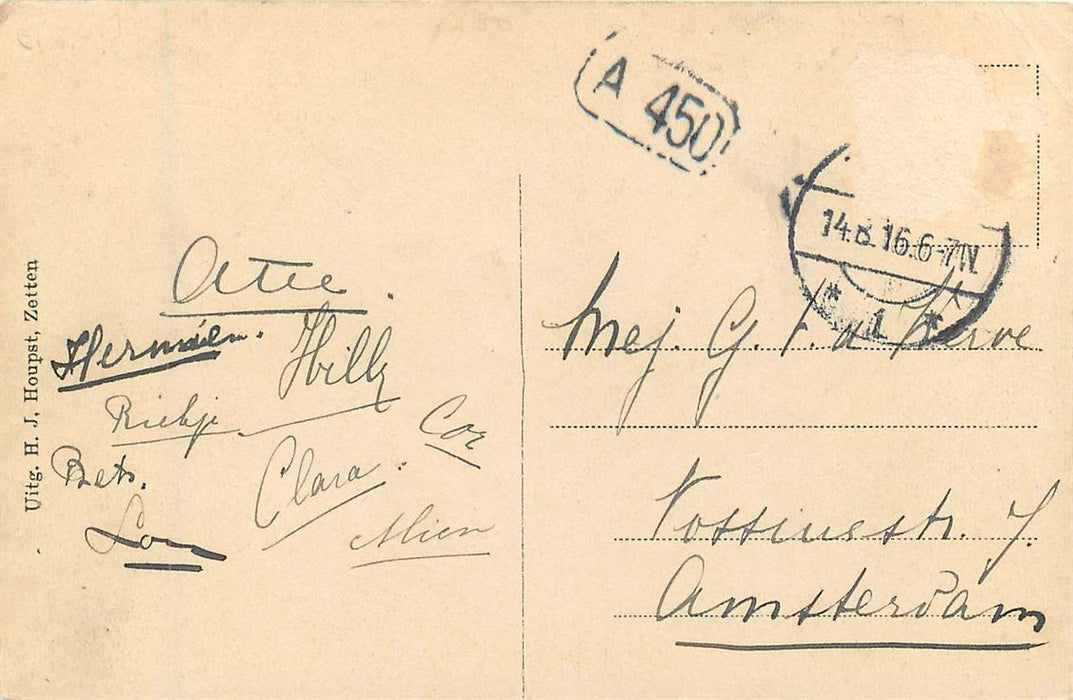 Uitg. H. J. Houpst, Zetten
A 450
14.8.16.6-7N
* 1 *
Atie.
Hermien.
Hilly
Riekje
Cor
Bets.
Clara.
Lou
Mien
Mej. G. v. d.
Vossiusstr. 7.
Amsterdam